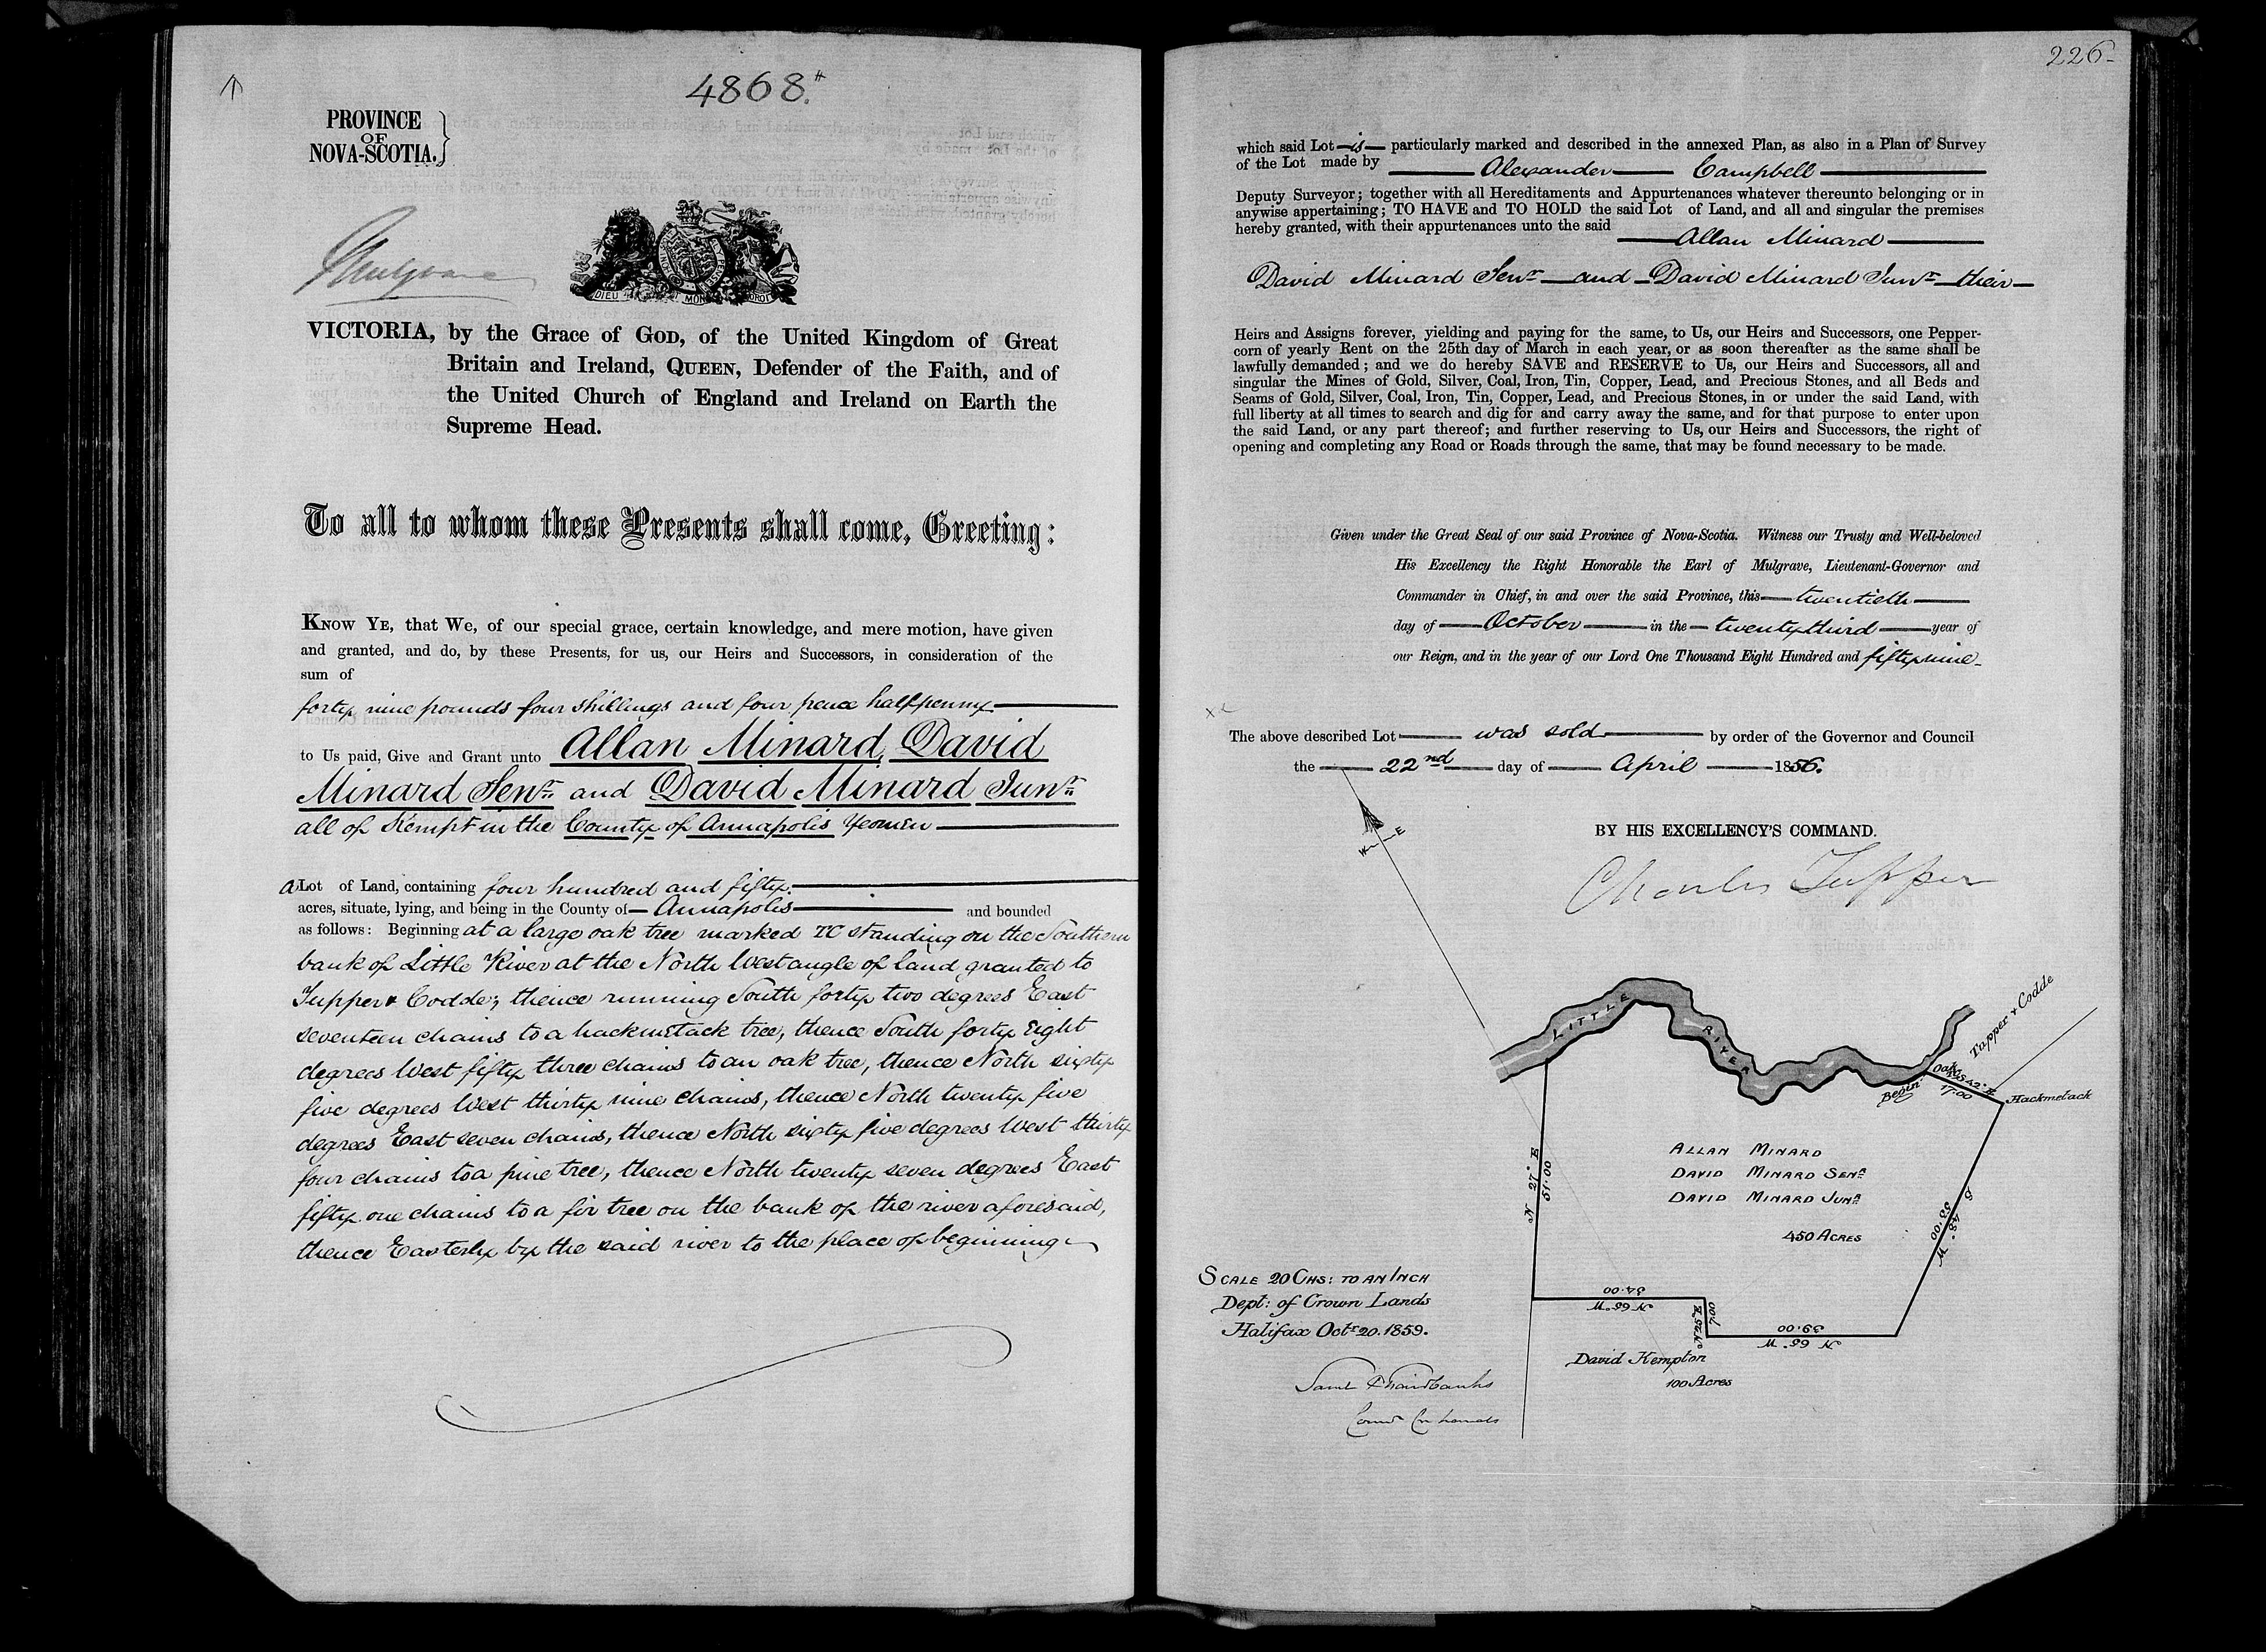 4868.
PROVINCE
OF
NOVA-SCOTIA.
Mulgrave
DIEU ET MON DROIT
VICTORIA, by the Grace of GOD, of the United Kingdom of Great
Britain and Ireland, QUEEN, Defender of the Faith, and of
the United Church of England and Ireland on Earth the
Supreme Head.
To all to whom these Presents shall come, Greeting:
KNOW YE, that We, of our special grace, certain knowledge, and mere motion, have given
and granted, and do, by these Presents, for us, our Heirs and Successors, in consideration of the
sum of
forty nine pounds four shillings and four pence halfpenny
to Us paid, Give and Grant unto Allan Minard, David
Minard Senr. and David Minard Junr.
all of Kempt in the County of Annapolis Yeomen
a Lot of Land, containing four hundred and fifty.
acres, situate, lying, and being in the County of Annapolis and bounded
as follows: Beginning at a large oak tree marked TC standing on the Southern
bank of Little River at the North West angle of land granted to
Tupper & Codde; thence running South forty two degrees East
seventeen chains to a hackmetack tree, thence South forty Eight
degrees West fifty three chains to an oak tree, thence North sixty
five degrees West thirty nine chains, thence North twenty five
degrees East seven chains, thence North sixty five degrees West thirty
four chains to a pine tree, thence North twenty seven degrees East
fifty one chains to a fir tree on the bank of the river aforesaid,
thence Easterly by the said river to the place of beginning
226
which said Lot is particularly marked and described in the annexed Plan, as also in a Plan of Survey
of the Lot made by Alexander Campbell
Deputy Surveyor; together with all Hereditaments and Appurtenances whatever thereunto belonging or in
anywise appertaining; TO HAVE and TO HOLD the said Lot of Land, and all and singular the premises
hereby granted, with their appurtenances unto the said Allan Minard
David Minard Senr and David Minard Junr their
Heirs and Assigns forever, yielding and paying for the same, to Us, our Heirs and Successors, one Pepper-
corn of yearly Rent on the 25th day of March in each year, or as soon thereafter as the same shall be
lawfully demanded; and we do hereby SAVE and RESERVE to Us, our Heirs and Successors, all and
singular the Mines of Gold, Silver, Coal, Iron, Tin, Copper, Lead, and Precious Stones, and all Beds and
Seams of Gold, Silver, Coal, Iron, Tin, Copper, Lead, and Precious Stones, in or under the said Land, with
full liberty at all times to search and dig for and carry away the same, and for that purpose to enter upon
the said Land, or any part thereof; and further reserving to Us, our Heirs and Successors, the right of
opening and completing any Road or Roads through the same, that may be found necessary to be made.
Given under the Great Seal of our said Province of Nova-Scotia. Witness our Trusty and Well-beloved
His Excellency the Right Honorable the Earl of Mulgrave, Lieutenant-Governor and
Commander in Chief, in and over the said Province, this twentieth
day of October in the twenty third year of
our Reign, and in the year of our Lord One Thousand Eight Hundred and fifty nine
The above described Lot was sold by order of the Governor and Council
the 22nd day of April 1856.
BY HIS EXCELLENCY'S COMMAND.
Charles Tupper
W E
LITTLE RIVER
Tupper & Codde
Oak
Begin
S 42° E
17.00
Hackmetack
N 27° E
51.00
ALLAN MINARD
DAVID MINARD SENR
DAVID MINARD JUNR
450 ACRES
S 48° W
53.00
34.00
N 65° W
N 25° E
7.00
39.00
N 65° W
David Kempton
100 Acres
SCALE 20 CHS: TO AN INCH
Dept: of Crown Lands
Halifax Octr 20. 1859.
Saml P Fairbanks